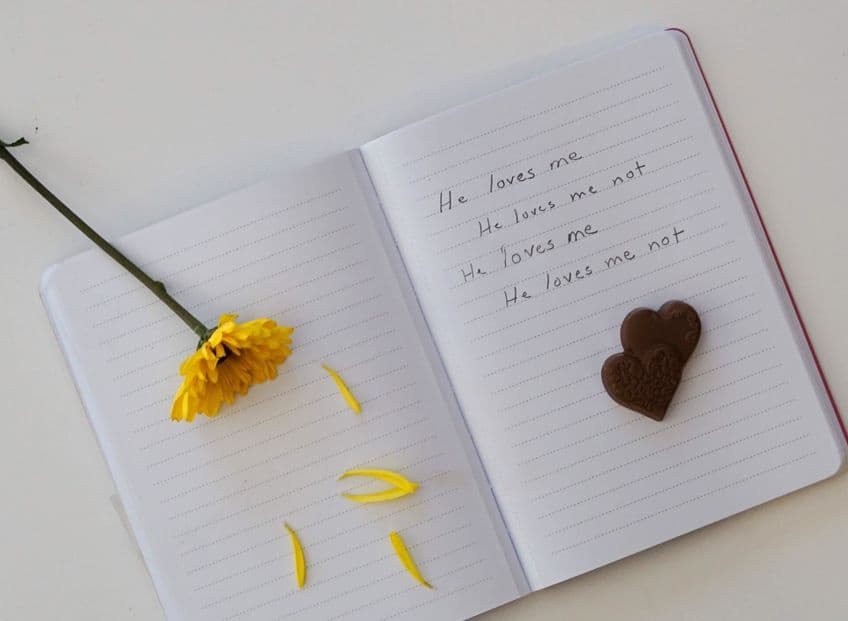 He loves me
He loves me not
He loves me
He loves me not